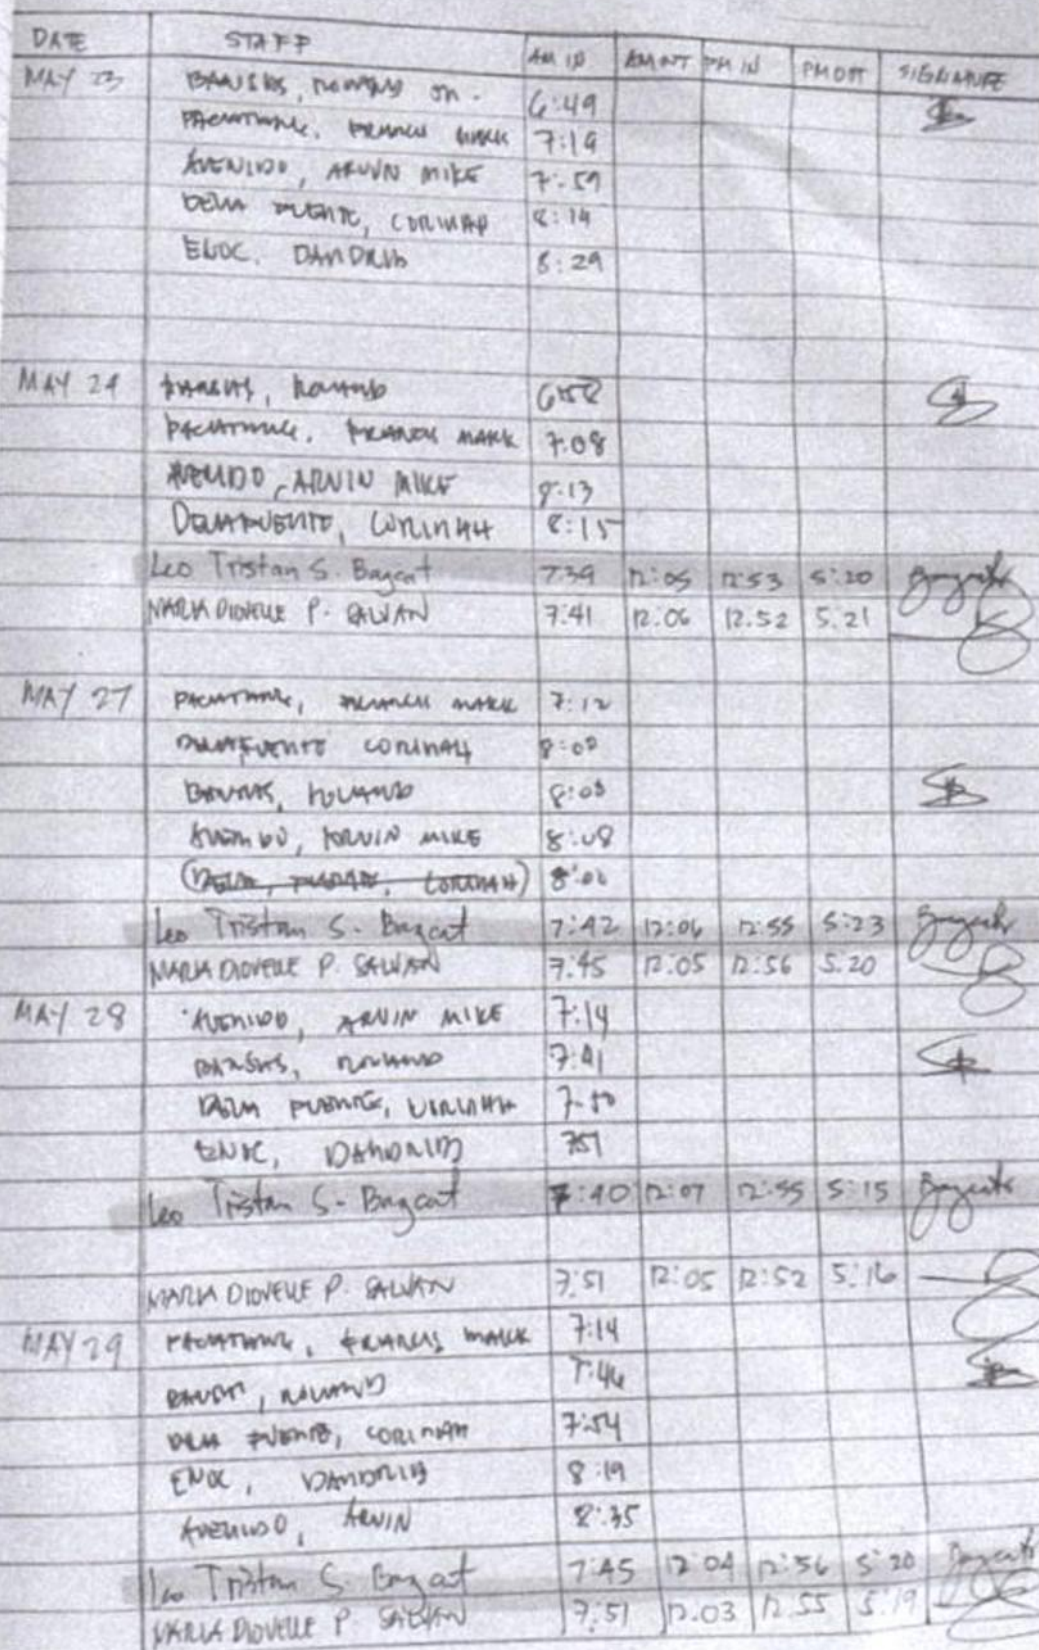 DATE STAFF AM IN AM OUT PM IN PM OUT SIGNATURE
MAY 23 6:49
MARK 7:19
AVENIDO, ARVIN MIKE 7:59
DELA PUENTE, CORINAH 8:14
ENOC, DANDRIB 8:29
MAY 24 6:58
MARK 7:08
AVENIDO, ARVIN MIKE 8:13
DELAPUENTE, CORINAH 8:15
Leo Tristan S. Bagcat 7:39 12:05 12:53 5:20
MARIA DIOVELLE P. SALVAN 7:41 12:06 12:52 5:21
MAY 27 MARK 7:12
DELAPUENTE CORINAH 8:00
8:08
AVENIDO, ARVIN MIKE 8:08
(DELA PUENTE, CORINAH) 8:00
Leo Tristan S. Bagcat 7:42 12:06 12:55 5:23
MARIA DIOVELLE P. SALVAN 7:45 12:05 12:56 5:20
MAY 28 AVENIDO, ARVIN MIKE 7:14
7:41
DELA PUENTE, CORINAH 7:50
ENOC, DANDRIB 751
Leo Tristan S. Bagcat 7:40 12:07 12:55 5:15
MARIA DIOVELLE P. SALVAN 7:51 12:05 12:52 5:16
MAY 29 FRANCIS MARK 7:14
7:46
DELA PUENTE, CORINAH 7:54
ENOC, DANDRIB 8:19
AVENIDO, ARVIN 8:35
Leo Tristan S. Bagcat 7:45 12:04 12:56 5:20
MARIA DIOVELLE P. SALVAN 7:51 12.03 12 55 5:19